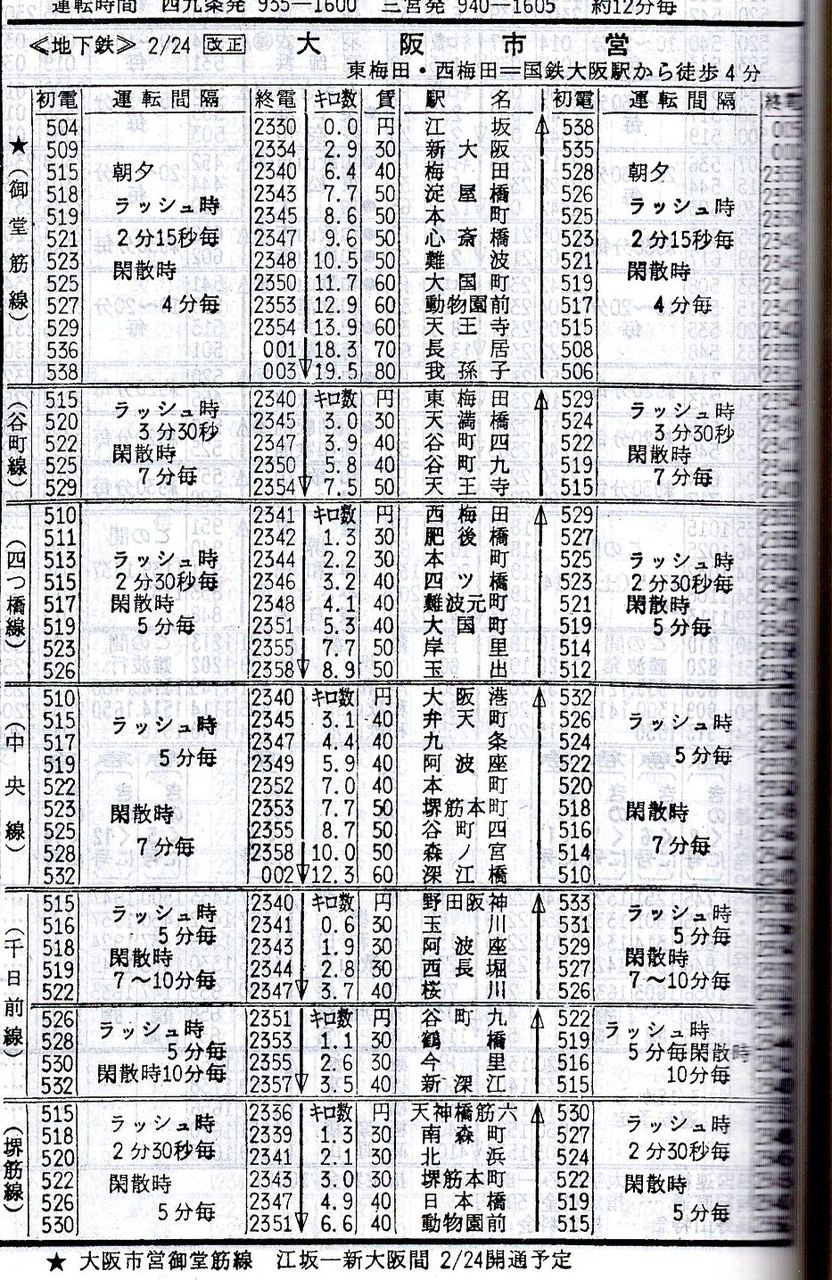 運転時間 四九条発 935―1600 三宮発 940―1605 約12分毎
≪地下鉄≫ 2/24 改正 大阪市営
東梅田・西梅田＝国鉄大阪駅から徒歩4分
初電 運転間隔 終電 キロ数 賃 駅名 初電 運転間隔 終電
★(御堂筋線)
504 2330 0.0 円 江坂 538
509 2334 2.9 30 新大阪 535
515 朝夕 2340 6.4 40 梅田 528 朝夕
518 ラッシュ時 2343 7.7 50 淀屋橋 526 ラッシュ時
519 2345 8.6 50 本町 525
521 2分15秒毎 2347 9.6 50 心斎橋 523 2分15秒毎
523 閑散時 2348 10.5 50 難波 521 閑散時
525 2350 11.7 60 大国町 519
527 4分毎 2353 12.9 60 動物園前 517 4分毎
529 2354 13.9 60 天王寺 515
536 001 18.3 70 長居 508
538 003 19.5 80 我孫子 506
(谷町線)
515 ラッシュ時 2340 キロ数 円 東梅田 529 ラッシュ時
520 3分30秒 2345 3.0 30 天満橋 524 3分30秒
522 閑散時 2347 3.9 40 谷町四 522 閑散時
525 7分毎 2350 5.8 40 谷町九 519 7分毎
529 2354 7.5 50 天王寺 515
(四つ橋線)
510 2341 キロ数 円 西梅田 529
511 2342 1.3 30 肥後橋 527
513 ラッシュ時 2344 2.2 30 本町 525 ラッシュ時
515 2分30秒毎 2346 3.2 40 四ツ橋 523 2分30秒毎
517 閑散時 2348 4.1 40 難波元町 521 閑散時
519 5分毎 2351 5.3 40 大国町 519 5分毎
523 2355 7.7 50 岸里 514
526 2358 8.9 50 玉出 512
(中央線)
510 2340 キロ数 円 大阪港 532
515 ラッシュ時 2345 3.1 40 弁天町 526 ラッシュ時
517 2347 4.4 40 九条 524
519 5分毎 2349 5.9 40 阿波座 522 5分毎
522 2352 7.0 40 本町 520
523 閑散時 2353 7.7 50 堺筋本町 518 閑散時
525 2355 8.7 50 谷町四 516
528 7分毎 2358 10.0 50 森ノ宮 514 7分毎
532 002 12.3 60 深江橋 510
(千日前線)
515 ラッシュ時 2340 キロ数 円 野田阪神 533 ラッシュ時
516 5分毎 2341 0.6 30 玉川 531 5分毎
518 閑散時 2343 1.9 30 阿波座 529 閑散時
519 7〜10分毎 2344 2.8 30 西長堀 527 7〜10分毎
522 2347 3.7 40 桜川 526
526 ラッシュ時 2351 キロ数 円 谷町九 522 ラッシュ時
528 5分毎 2353 1.1 30 鶴橋 519 5分毎閑散時
530 閑散時10分毎 2355 2.6 30 今里 516 10分毎
532 2357 3.5 40 新深江 515
(堺筋線)
515 ラッシュ時 2336 キロ数 円 天神橋筋六 530 ラッシュ時
518 2分30秒毎 2339 1.3 30 南森町 527 2分30秒毎
520 2341 2.1 30 北浜 524
522 閑散時 2343 3.0 30 堺筋本町 522 閑散時
526 5分毎 2347 4.9 40 日本橋 519 5分毎
530 2351 6.6 40 動物園前 515
★ 大阪市営御堂筋線 江坂―新大阪間 2/24開通予定